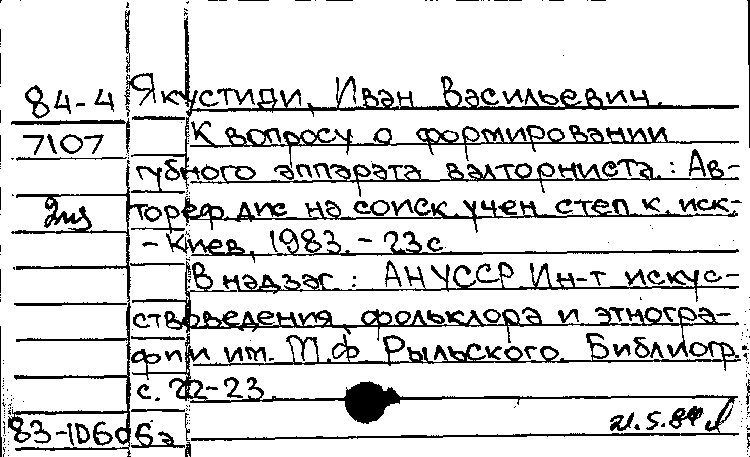 84-4 Якустиди, Иван Васильевич.
7107 К вопросу о формировании
губного аппарата валторниста : Ав-
тореф. дис. на соиск. учен. степ. к. иск.
- Киев, 1983. - 23 с.
В надзаг.: АН УССР. Ин-т искус-
ствоведения, фольклора и этногра-
фии им. М.Ф. Рыльского. Библиогр.:
с. 22-23.
83-10606а 21.5.84